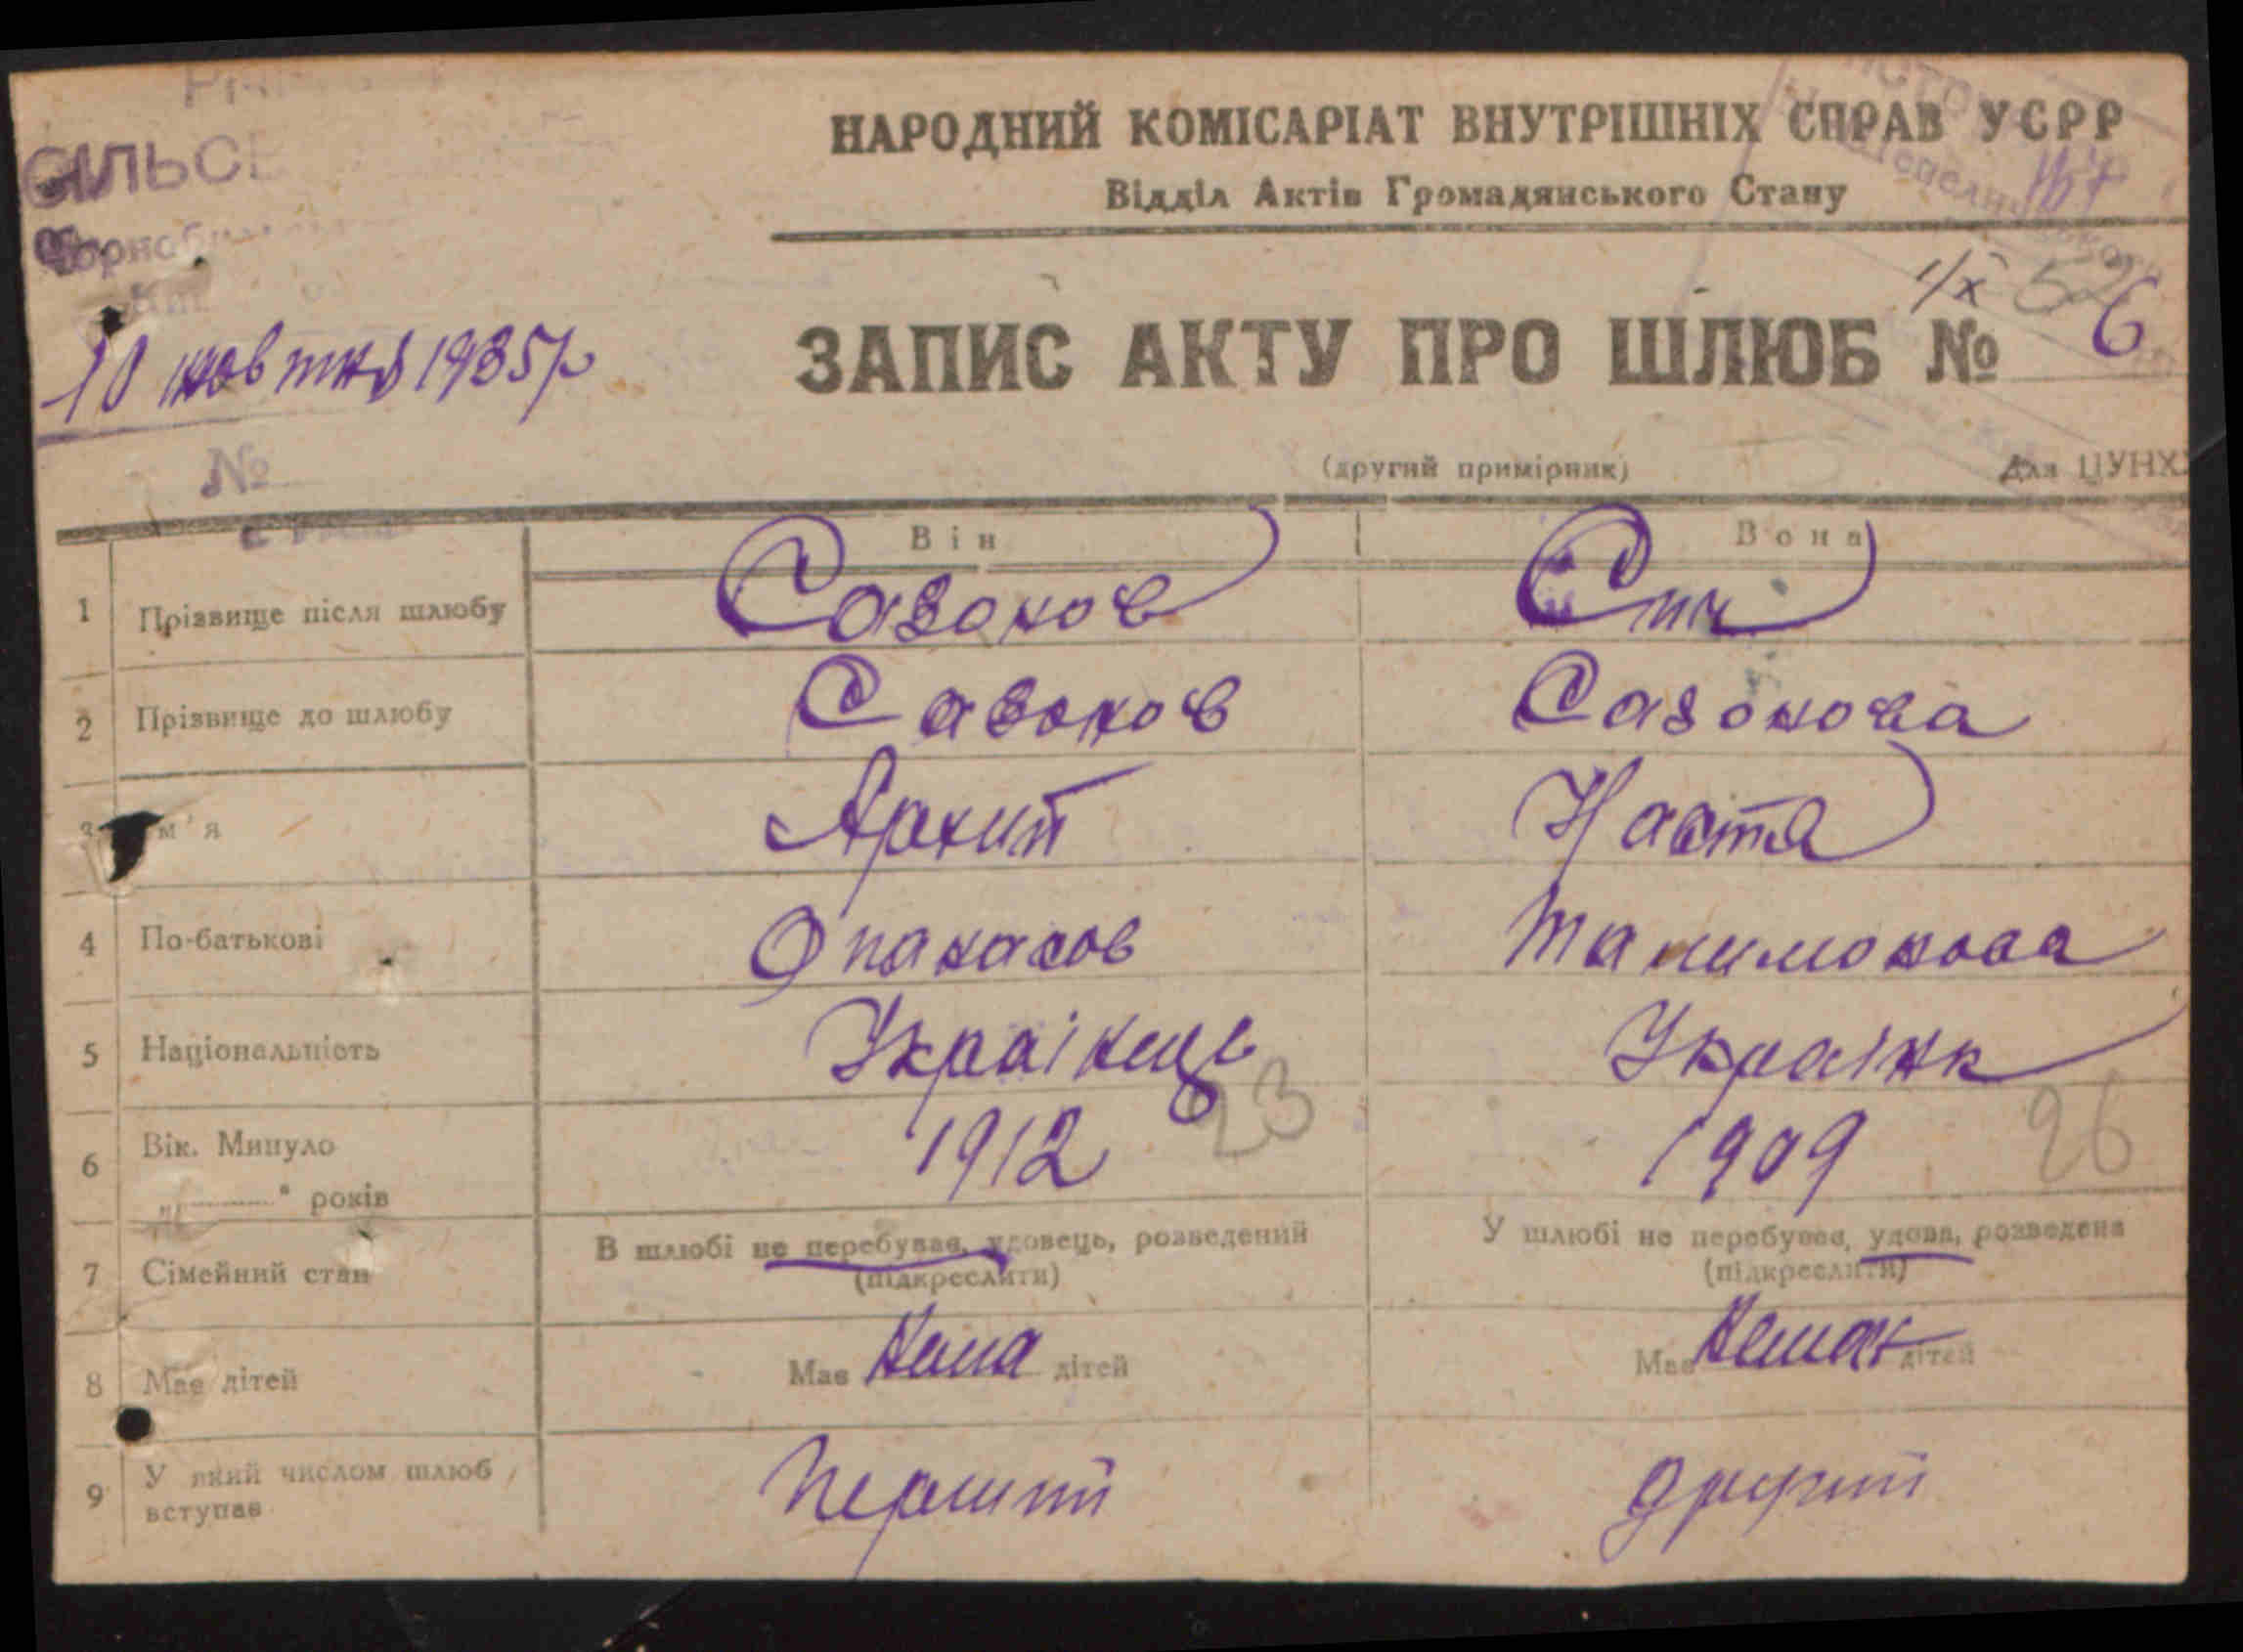 СІЛЬС
НАРОДНИЙ КОМІСАРІАТ ВНУТРІШНІХ СПРАВ УСРР
Відділ Актів Громадянського Стану
1/X 52
10 жовтня 1935 р
ЗАПИС АКТУ ПРО ШЛЮБ № 6
№
(другий примірник) Для ЦУНХ
Він Вона
1 Прізвище після шлюбу Сазонов Сич
2 Прізвище до шлюбу Сазонов Сазонова
3 м'я Архип Настя
4 По-батькові Опанасов
5 Національність Українець Українк
6 Вік. Минуло 1912 23 1909 26
„ " років
7 Сімейний стан В шлюбі не перебував, удовець, розведений У шлюбі не перебуває, удова, розведена
(підкреслити) (підкреслити)
8 Має дітей Має Нема дітей Має Немає дітей
9 У який числом шлюб вступає Перший другий